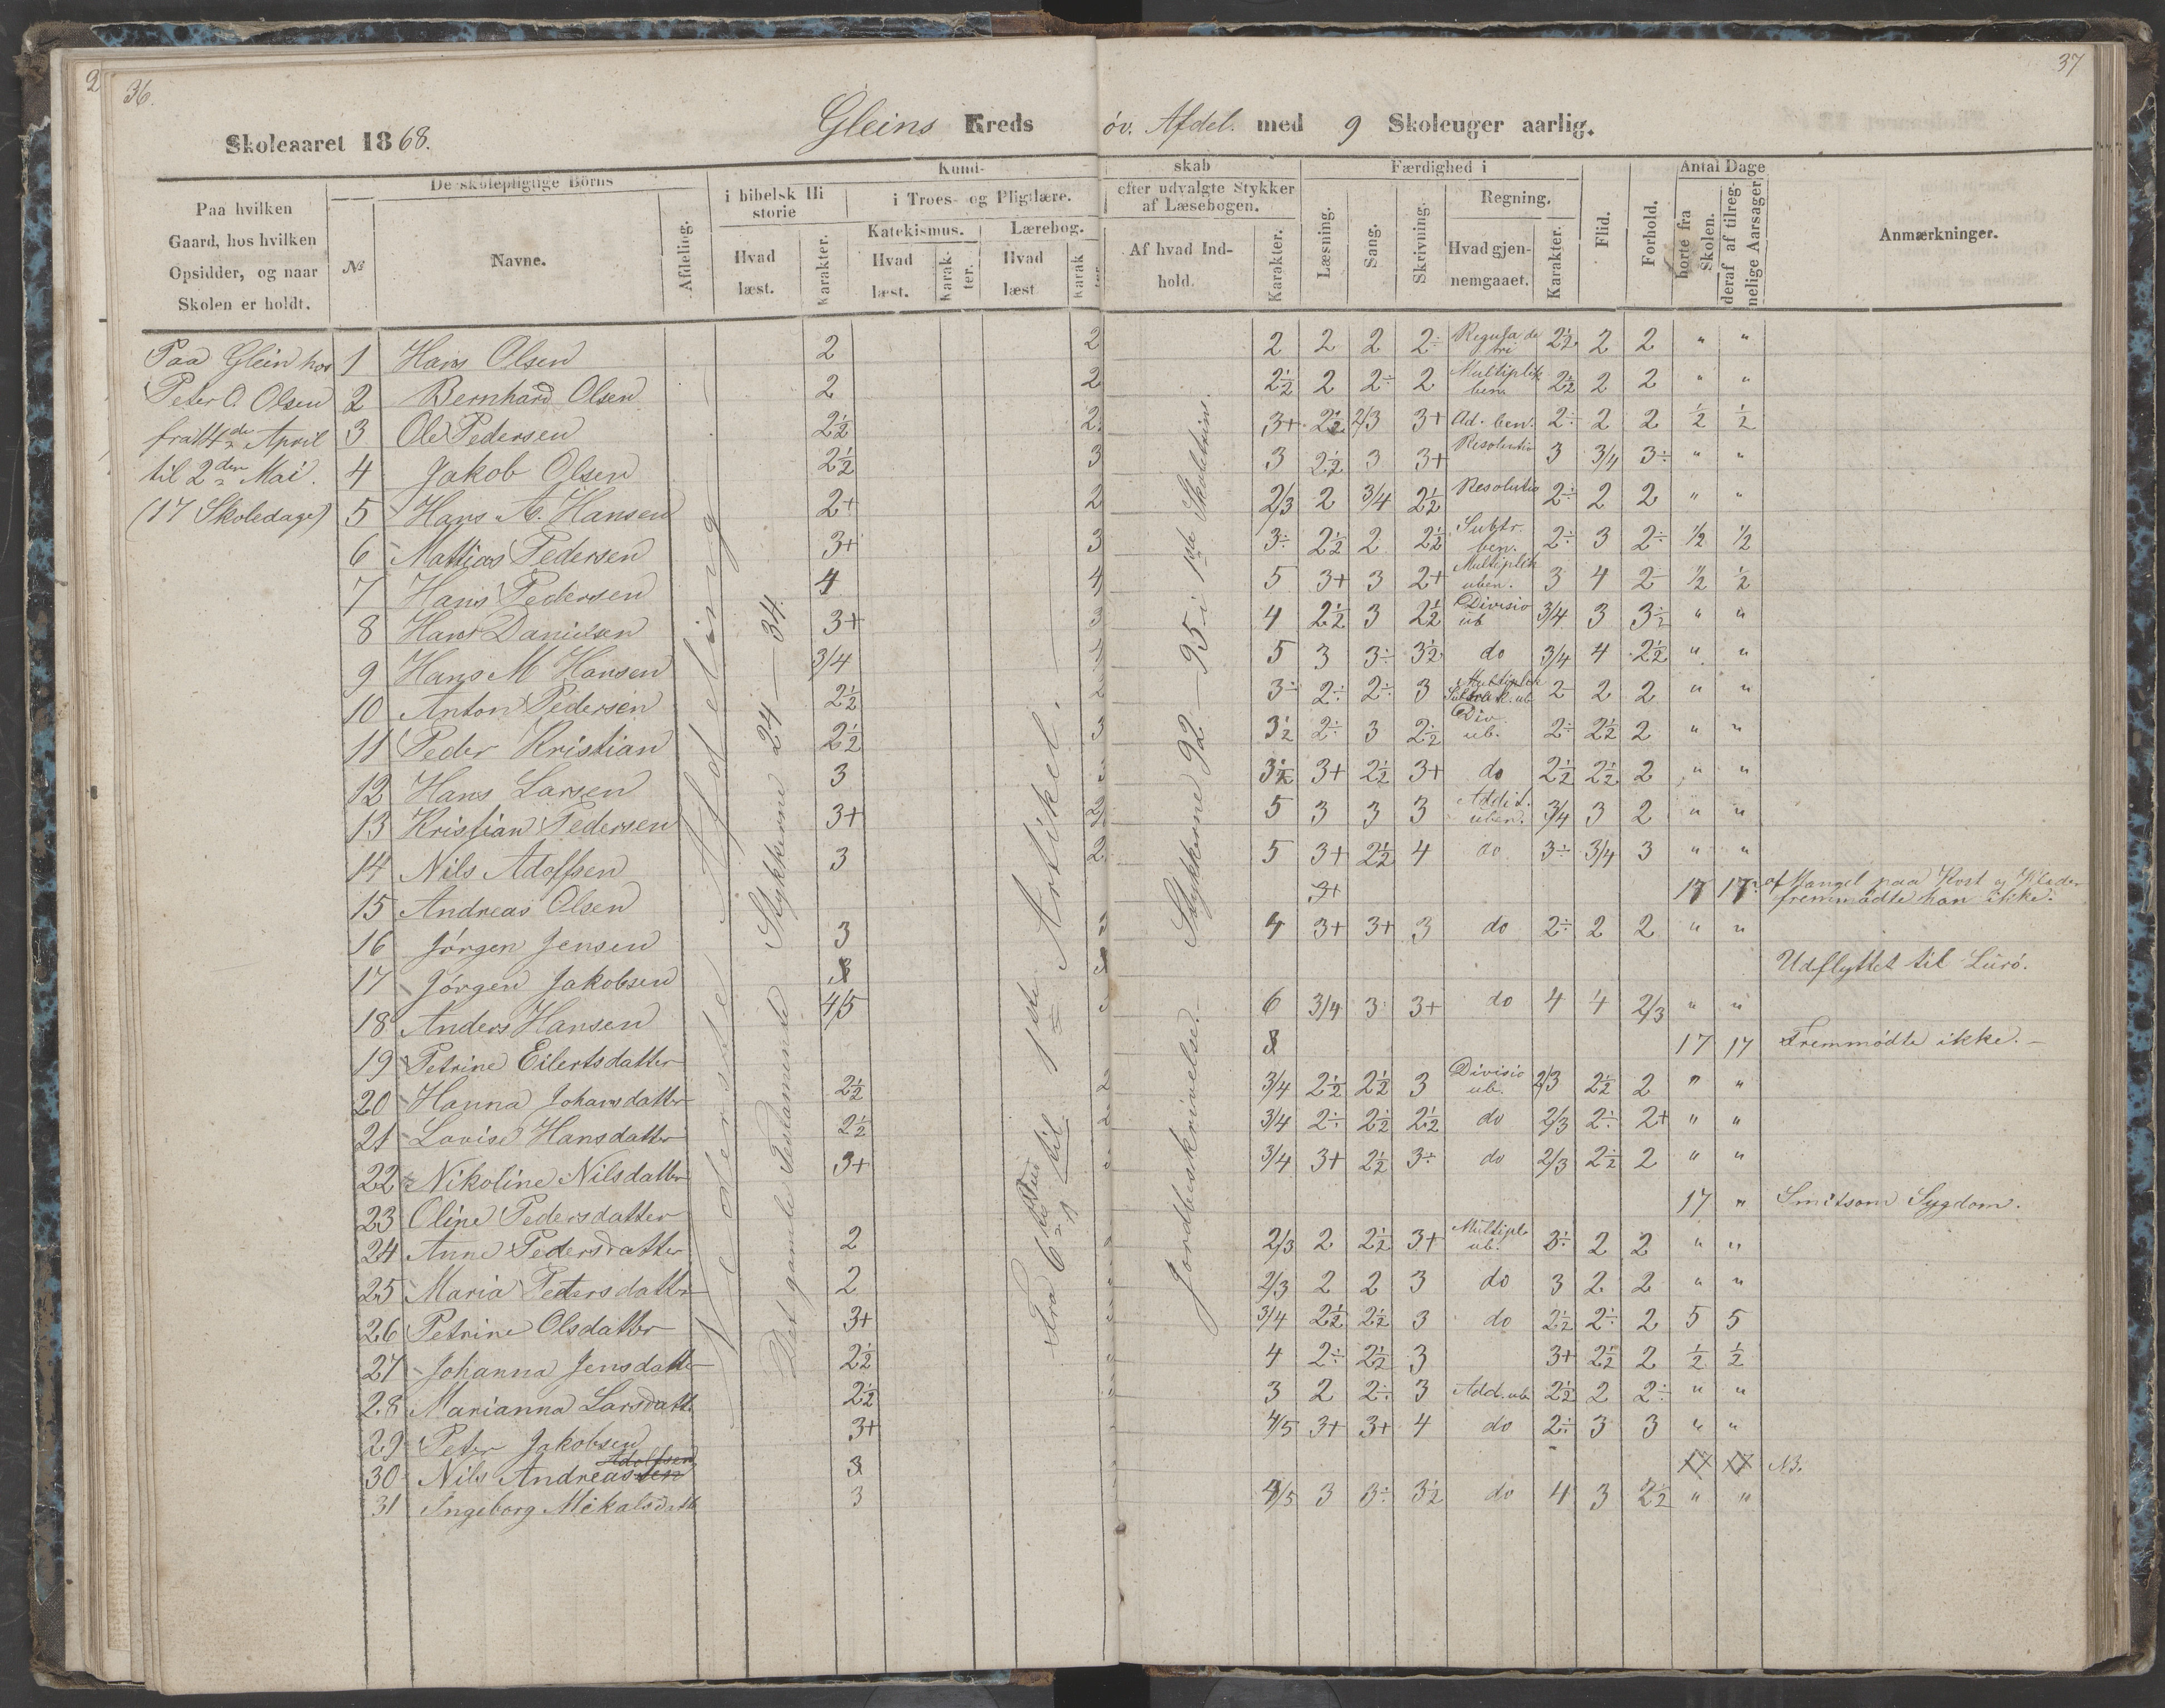 2
36.
37
Skoleaaret 1868.
Gleins Kreds öv. Afdel. med 9 Skoleuger aarlig.
Paa hvilken Gaard, hos hvilken Opsidder, og naar Skolen er holdt.
De skolepligtige Börns
№
Navne.
Afdeling.
Kund-
i bibelsk Hi storie
Hvad læst.
Karakter.
i Troes- og Pligtlære.
Katekismus.
Hvad læst.
Karak- ter.
Lærebog.
Hvad læst
Karak
skab
efter udvalgte Stykker af Læsebogen.
Af hvad Ind- hold.
Karakter.
Færdighed i
Læsning.
Sang.
Skrivning.
Regning.
Hvad gjen- nemgaaet.
Karakter.
Flid.
Forhold.
Antal Dage
borte fra Skolen.
deraf af tilreg- nelige Aarsager
Anmærkninger.
Paa Glein hos
Peter O. Olsen
fra 14de April
til 2den Mai.
(17 Skoledage)
Nederste Afdeling
Det gamle Testamente Stykkerne 24 – 34.
Fra 6te Bud til 1ste Artikel.
Jordbeskrivelse. Stykkerne 92 – 95 i 1ste Skoletrin.
1 Hans Olsen 2 2 2 2 2 2÷ Regula de tri 2½ 2 2 " "
2 Bernhard Olsen 2 2 2½ 2 2÷ 2 Multiplik ben. 2½ 2 2 " "
3 Ole Pedersen 2½ 2 3+ 2½ 2/3 3+ Ad. ben. 2÷ 2 2 ½ ½
4 Jakob Olsen 2½ 3 3 2½ 3 3+ Resolutio 3 3/4 3÷ " "
5 Hans A. Hansen 2+ 2 2/3 2 3/4 2½ Resolutio 2÷ 2 2 " "
6 Mathias Pedersen 3+ 3 3÷ 2½ 2 2½ Subtr. ben. 2÷ 3 2÷ ½ ½
7 Hans Pedersen 4 4 5 3+ 3 2+ Multiplik uben. 3 4 2÷ ½ ½
8 Hans Danielsen 3+ 3 4 2½ 3 2½ Divisio ub 3/4 3 3½ " "
9 Hans M Hansen 3/4 4 5 3 3÷ 3½ do 3/4 4 2½ " "
10 Anton Pedersen 2½ 2 3÷ 2÷ 2÷ 3 Multiplik ub 2÷ 2 2 " "
11 Peder Kristian 2½ 3 3½ 2÷ 3 2½ Div. ub. 2÷ 2½ 2 " "
12 Hans Larsen 3 3 3½ 3+ 2½ 3+ do 2½ 2½ 2 " "
13 Kristian Pedersen 3+ 2 5 3 3 3 Addit. uben. 3/4 3 2 " "
14 Nils Adolfsen 3 2 5 3+ 2½ 4 do 3÷ 3/4 3 " "
15 Andreas Olsen 3+ 17 17 af Mangel paa Kost og Klæder fremmødte han ikke.
16 Jörgen Jensen 3 3 4 3+ 3+ 3 do 2÷ 2 2 " "
17 Jörgen Jakobsen Udflyttet til Lurö.
18 Anders Hansen 4/5 3 6 3/4 3 3+ do 4 4 2/3 " "
19 Petrine Eilertsdatter 17 17 Fremmødte ikke. –
20 Hanna Johansdatter 2½ 2 3/4 2½ 2½ 3 Divisio ub. 2/3 2½ 2 " "
21 Lovise Hansdatter 2½ 2 3/4 2÷ 2½ 2½ do 2/3 2÷ 2+ " "
22 Nikoline Nilsdatter 3+ 3 3/4 3+ 2½ 3÷ do 2/3 2½ 2 " "
23 Oline Pedersdatter 17 " Smitsom Sygdom.
24 Anne Pedersdatter 2 2/3 2 2½ 3+ Multipl. ub. 3÷ 2 2 " "
25 Maria Petersdatter 2 2/3 2 2 3 do 3 2 2 " "
26 Petrine Olsdatter 3+ 3/4 2½ 2½ 3 do 2½ 2÷ 2 5 5
27 Johanna Jensdatter 2½ 4 2÷ 2½ 3 3+ 2½ 2 ½ ½
28 Marianna Larsdatt. 2½ 3 2 2÷ 3 Add. ub 2½ 2 2÷ " "
29 Peter Jakobsen 3+ 4/5 3+ 3+ 4 do 2÷ 3 3 " "
30 Nils Andreassen Adolfsen 17 17 NB.
31 Ingeborg Mikalsdatt 3 4/5 3 3÷ 3½ do 4 3 2½ " "